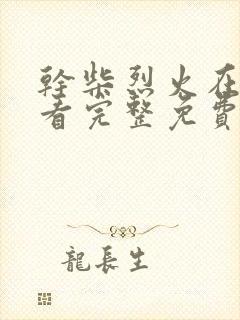 幹柴烈火在
看完整免費
龍長生